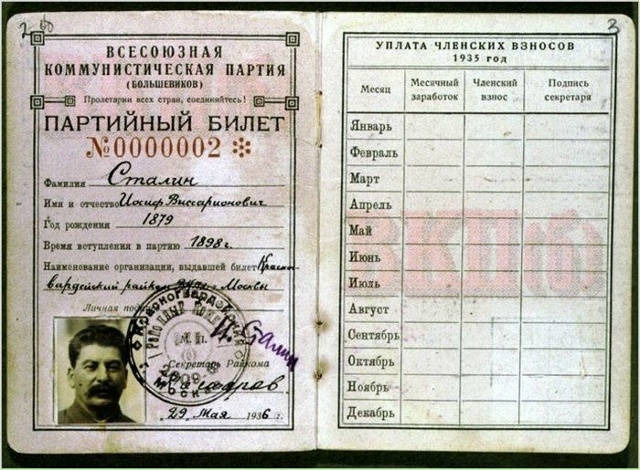 2 об
ВСЕСОЮЗНАЯ
КОММУНИСТИЧЕСКАЯ ПАРТИЯ
(БОЛЬШЕВИКОВ)
Пролетарии всех стран, соединяйтесь!
ПАРТИЙНЫЙ БИЛЕТ
№0000002
Фамилия Сталин
Имя и отчество Иосиф Виссарионович
Год рождения 1879
Время вступления в партию 1898 г.
Наименование организации, выдавшей билет Красно-
вардейский райком г. Москвы
Личная
И. Сталин
М. П.
Секретарь Райкома
29 мая 1936 г.
3
УПЛАТА ЧЛЕНСКИХ ВЗНОСОВ
1935 год
Месяц Месячный заработок Членский взнос Подпись секретаря
Январь
Февраль
Март
Апрель
Май
Июнь
Июль
Август
Сентябрь
Октябрь
Ноябрь
Декабрь
ВКП(б)